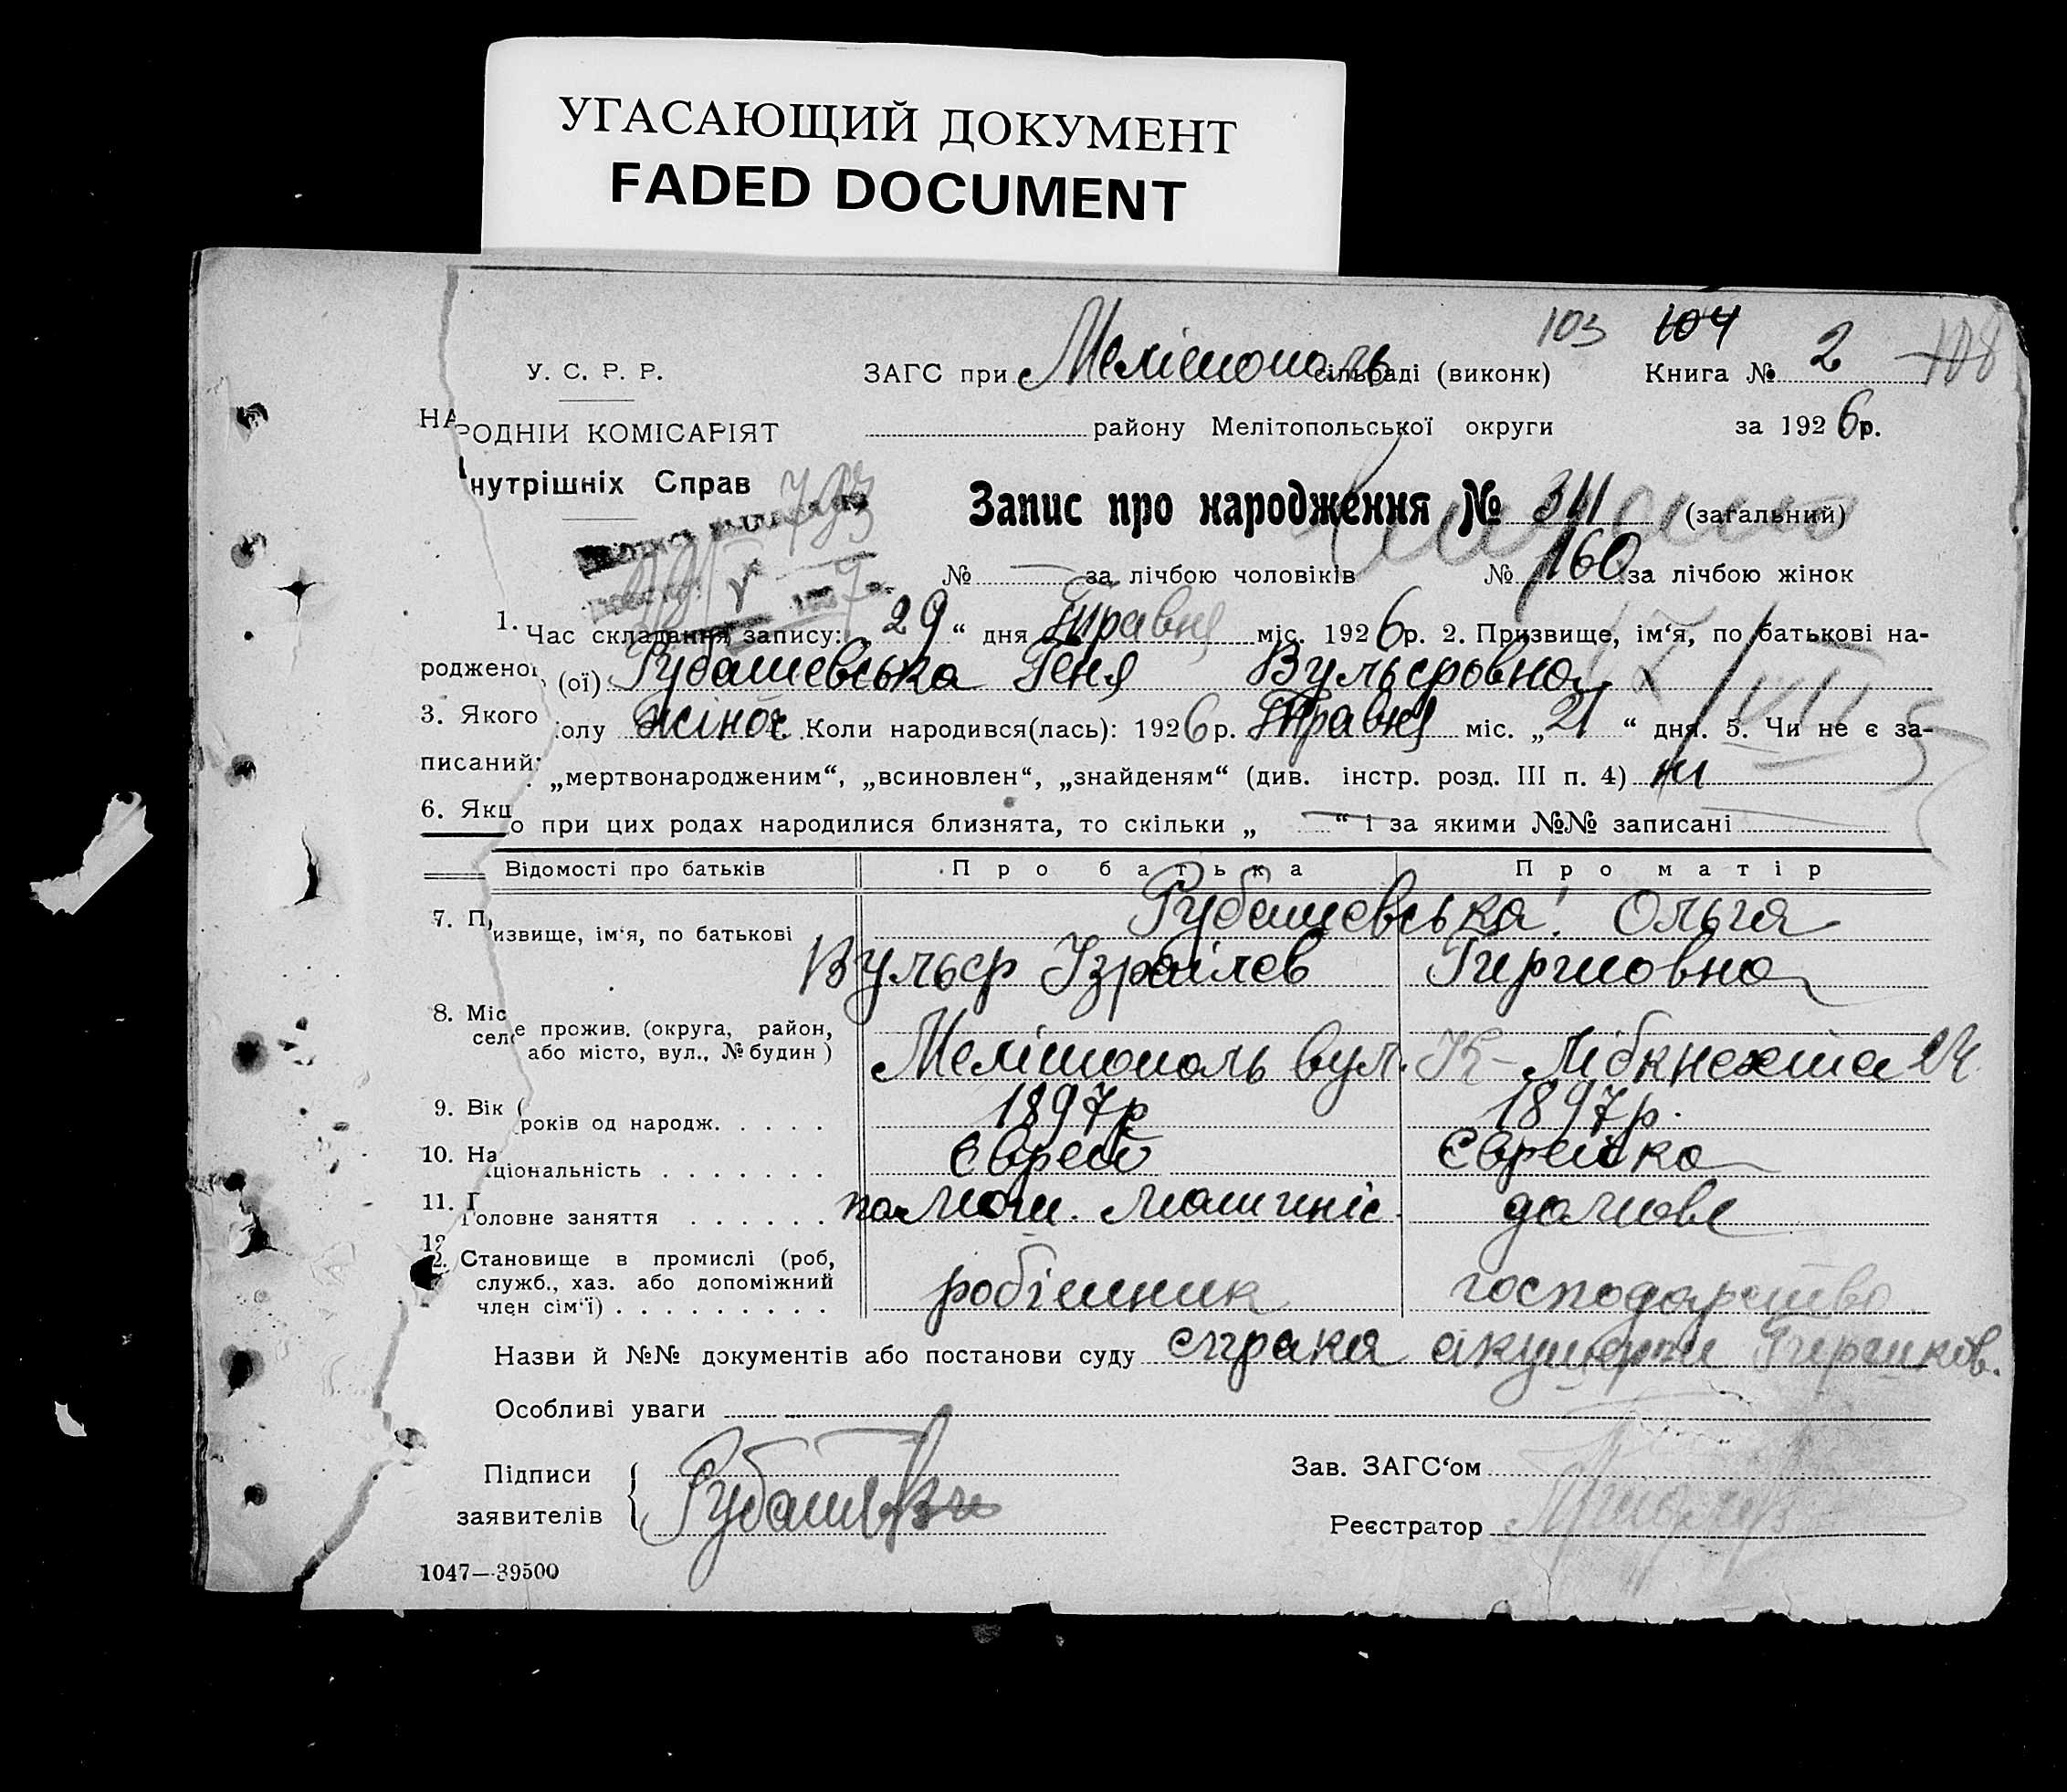 УГАСАЮЩИЙ ДОКУМЕНТ
FADED DOCUMENT
103 104 108
У. С. Р. Р.
ЗАГС при Мелітополь сільраді (виконк) Книга № 2
НАРОДНІЙ КОМІСАРІЯТ
району Мелітопольської округи за 1926р.
Внутрішніх Справ
Запис про народження № 311 (загальний)
№ — за лічбою чоловіків № 160 за лічбою жінок
1. Час складання запису: 29 “ дня Травня міс. 1926р. 2. Призвище, ім‘я, по батькові на-
родженої, (ої) Рубашевська Геня Вульфовна
3. Якого полу жіноч. Коли народився(лась): 1926р. Травня міс. „21 “ дня. 5. Чи не є за-
писаний: „мертвонародженим“, „всиновлен“, „знайденям“ (див. інстр. розд. III п. 4) ні
6. Якщо при цих родах народилися близнята, то скільки „ — “ і за якими №№ записані
Відомості про батьків Про батька Про матір
7. Призвище, ім‘я, по батькові Рубашевська: Ольга
Вульф Ізраілев Гиршовна
8. Місце прожив. (округа, район,
село або місто, вул., № будин )
Мелітополь вул. К- Лібкнехта 24.
9. Вік (років од народж. . . . . 1897р 1897р.
10. Національність . . . . . . . Єврей Єврейка
11. Головне заняття . . . . . . помош. машиніс. домове
12. Становище в промислі (роб,
служб., хаз. або допоміжний
член сім‘ї) . . . . . . . . . робітник господарство
Назви й №№ документів або постанови суду справка акушерки
Особливі уваги
Підписи
заявителів
Зав. ЗАГС‘ом
Реєстратор
1047—39500